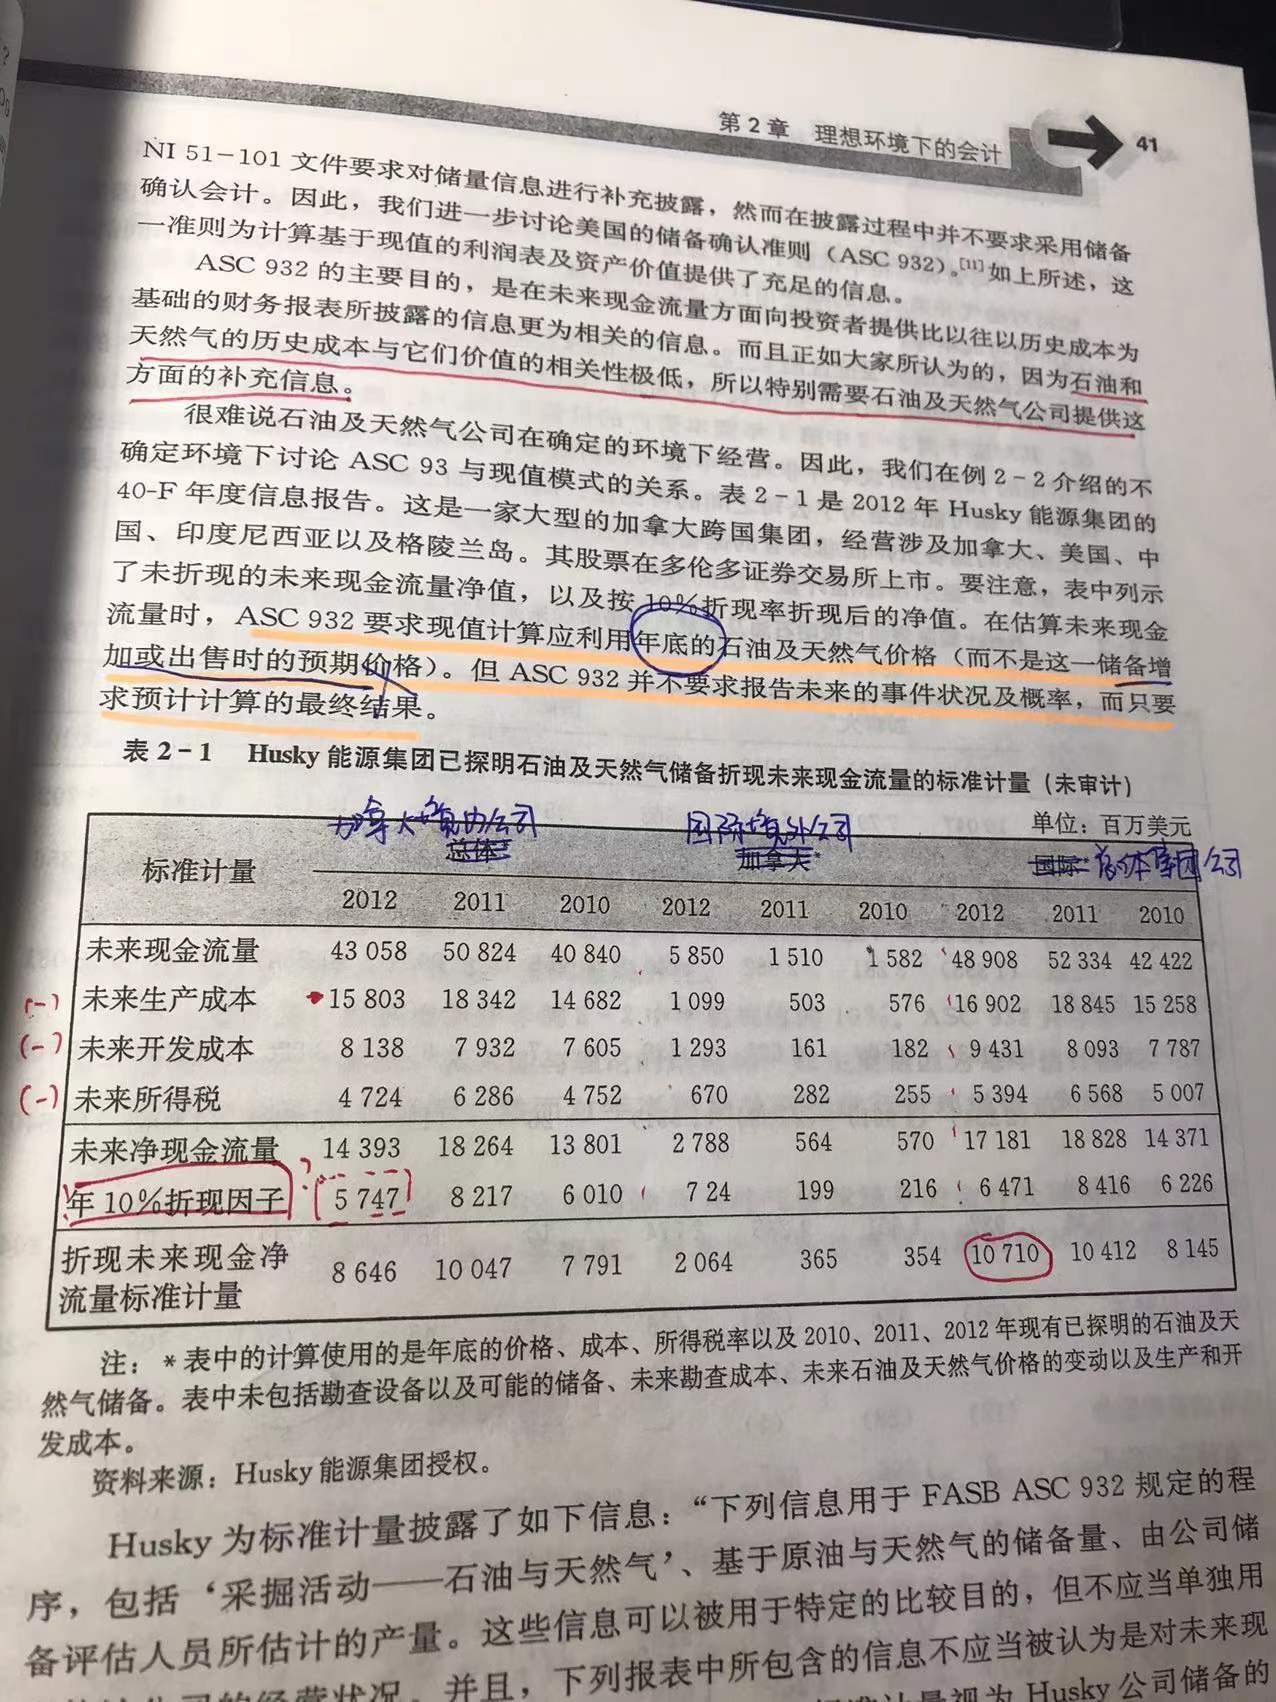 第2章 理想环境下的会计 41
NI 51-101 文件要求对储量信息进行补充披露，然而在披露过程中并不要求采用储备
确认会计。因此，我们进一步讨论美国的储备确认准则（ASC 932）。[11]如上所述，这
一准则为计算基于现值的利润表及资产价值提供了充足的信息。
ASC 932 的主要目的，是在未来现金流量方面向投资者提供比以往以历史成本为
基础的财务报表所披露的信息更为相关的信息。而且正如大家所认为的，因为石油和
天然气的历史成本与它们价值的相关性极低，所以特别需要石油及天然气公司提供这
方面的补充信息。
很难说石油及天然气公司在确定的环境下经营。因此，我们在例 2-2 介绍的不
确定环境下讨论 ASC 93 与现值模式的关系。表 2-1 是 2012 年 Husky 能源集团的
40-F 年度信息报告。这是一家大型的加拿大跨国集团，经营涉及加拿大、美国、中
国、印度尼西亚以及格陵兰岛。其股票在多伦多证券交易所上市。要注意，表中列示
了未折现的未来现金流量净值，以及按 10%折现率折现后的净值。在估算未来现金
流量时，ASC 932 要求现值计算应利用年底的石油及天然气价格（而不是这一储备增
加或出售时的预期价格）。但 ASC 932 并不要求报告未来的事件状况及概率，而只要
求预计计算的最终结果。
表 2-1 Husky 能源集团已探明石油及天然气储备折现未来现金流量的标准计量（未审计）
单位：百万美元
加拿大境内公司 国际境外公司 总体集团公司
标准计量 总体* 加拿大* 国际*
2012 2011 2010 2012 2011 2010 2012 2011 2010
未来现金流量 43 058 50 824 40 840 5 850 1 510 1 582 48 908 52 334 42 422
(-) 未来生产成本 15 803 18 342 14 682 1 099 503 576 16 902 18 845 15 258
(-) 未来开发成本 8 138 7 932 7 605 1 293 161 182 9 431 8 093 7 787
(-) 未来所得税 4 724 6 286 4 752 670 282 255 5 394 6 568 5 007
未来净现金流量 14 393 18 264 13 801 2 788 564 570 17 181 18 828 14 371
年 10%折现因子 ? 5 747 8 217 6 010 7 24 199 216 6 471 8 416 6 226
折现未来现金净
流量标准计量 8 646 10 047 7 791 2 064 365 354 10 710 10 412 8 145
注：*表中的计算使用的是年底的价格、成本、所得税率以及 2010、2011、2012 年现有已探明的石油及天
然气储备。表中未包括勘查设备以及可能的储备、未来勘查成本、未来石油及天然气价格的变动以及生产和开
发成本。
资料来源：Husky 能源集团授权。
Husky 为标准计量披露了如下信息：“下列信息用于 FASB ASC 932 规定的程
序，包括‘采掘活动——石油与天然气’、基于原油与天然气的储备量、由公司储
备评估人员所估计的产量。这些信息可以被用于特定的比较目的，但不应当单独用
并且，下列报表中所包含的信息不应当被认为是对未来现
视为 Husky 公司储备的